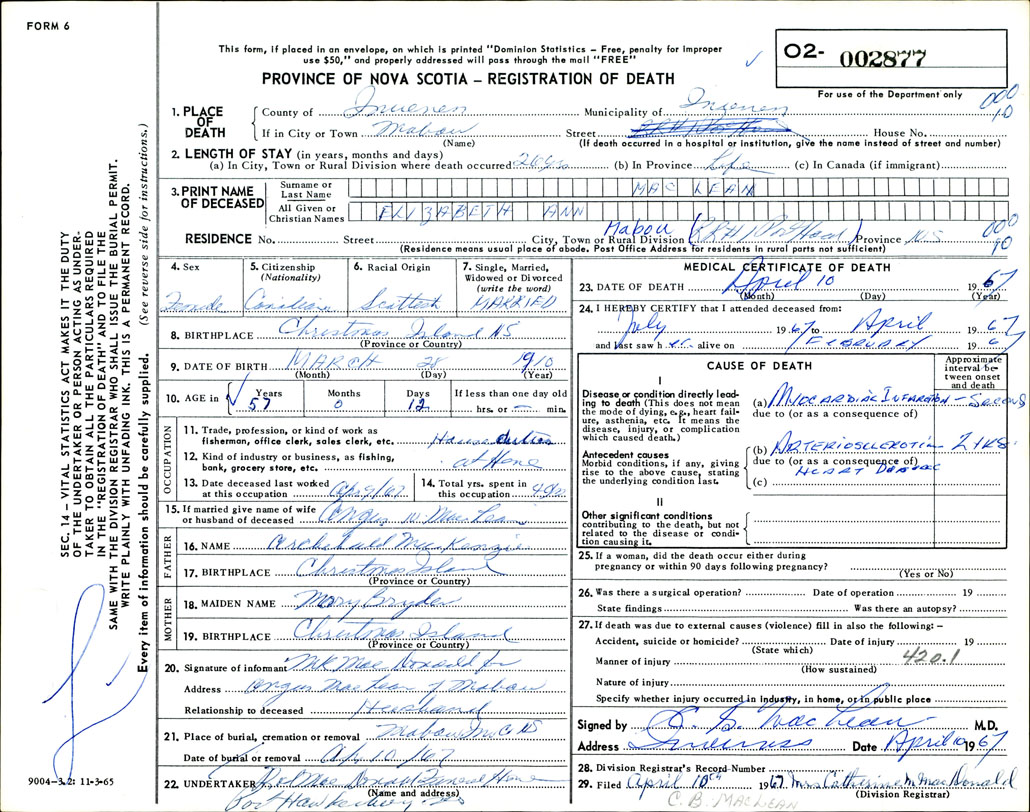 FORM 6
This form, if placed in an envelope, on which is printed "Dominion Statistics – Free, penalty for improper
use $50," and properly addressed will pass through the mail "FREE"
O2- 002877
PROVINCE OF NOVA SCOTIA – REGISTRATION OF DEATH
For use of the Department only
000
10
1. PLACE OF DEATH
County of Municipality of
If in City or Town Mabou Street House No.
(Name) (If death occurred in a hospital or institution, give the name instead of street and number)
2. LENGTH OF STAY (in years, months and days)
(a) In City, Town or Rural Division where death occurred (b) In Province Life (c) In Canada (if immigrant)
3. PRINT NAME OF DECEASED
Surname or Last Name MAC LEAN
All Given or Christian Names ELIZABETH ANN
RESIDENCE No. Street City, Town or Rural Division Mabou Province N.S.
000
10
(Residence means usual place of abode. Post Office Address for residents in rural parts not sufficient)
4. Sex
5. Citizenship (Nationality)
6. Racial Origin
7. Single, Married, Widowed or Divorced (write the word)
Female Canadian Scottish MARRIED
8. BIRTHPLACE Christmas Island NS
(Province or Country)
9. DATE OF BIRTH MARCH 28 1910
(Month) (Day) (Year)
10. AGE in Years 57 Months 0 Days 12 If less than one day old hrs. or min.
OCCUPATION
11. Trade, profession, or kind of work as
fisherman, office clerk, sales clerk, etc. House duties
12. Kind of industry or business, as fishing,
bank, grocery store, etc. at Home
13. Date deceased last worked
at this occupation Apr 9/67
14. Total yrs. spent in
this occupation
15. If married give name of wife
or husband of deceased Angus
FATHER
16. NAME Archibald MacKenzie
17. BIRTHPLACE Christmas Island
(Province or Country)
MOTHER
18. MAIDEN NAME Mary Bryden
19. BIRTHPLACE Christmas Island
(Province or Country)
20. Signature of informant
Address Angus MacLean Mabou
Relationship to deceased Husband
21. Place of burial, cremation or removal Mabou
Date of burial or removal
22. UNDERTAKER MacDonald Funeral Home
(Name and address)
Port Hawkesbury NS
MEDICAL CERTIFICATE OF DEATH
23. DATE OF DEATH April 10 1967
(Month) (Day) (Year)
24. I HEREBY CERTIFY that I attended deceased from:
July 1967 to April 1967
and last saw her alive on FEBRUARY 1967
CAUSE OF DEATH
Approximate interval between onset and death
I
Disease or condition directly leading to death (This does not mean the mode of dying, e.g., heart failure, asthenia, etc. It means the disease, injury, or complication which caused death.)
(a) MYOCARDIAL INFARCTION –
due to (or as a consequence of)
Antecedent causes
Morbid conditions, if any, giving rise to the above cause, stating the underlying condition last.
(b) ARTERIOSCLEROTIC
due to (or as a consequence of)
HEART DISEASE
(c)
II
Other significant conditions
contributing to the death, but not related to the disease or condition causing it.
25. If a woman, did the death occur either during
pregnancy or within 90 days following pregnancy?
(Yes or No)
26. Was there a surgical operation? Date of operation 19
State findings Was there an autopsy?
27. If death was due to external causes (violence) fill in also the following: –
Accident, suicide or homicide? Date of injury 19
(State which)
Manner of injury 420.1
(How sustained)
Nature of injury
Specify whether injury occurred in Industry, in home, or in public place
Signed by MacLean M.D.
Address Inverness Date April 10 1967
28. Division Registrar's Record Number
29. Filed April 10th 1967 Mrs Catherine M MacDonald
(Division Registrar)
C. B. MACLEAN
9004-3.2: 11-3-65
SEC. 14 – VITAL STATISTICS ACT MAKES IT THE DUTY
OF THE UNDERTAKER OR PERSON ACTING AS UNDER-
TAKER TO OBTAIN ALL THE PARTICULARS REQUIRED
IN THE "REGISTRATION OF DEATH" AND TO FILE THE
SAME WITH THE DIVISION REGISTRAR WHO SHALL ISSUE THE BURIAL PERMIT.
WRITE PLAINLY WITH UNFADING INK. THIS IS A PERMANENT RECORD.
Every item of information should be carefully supplied. (See reverse side for instructions.)